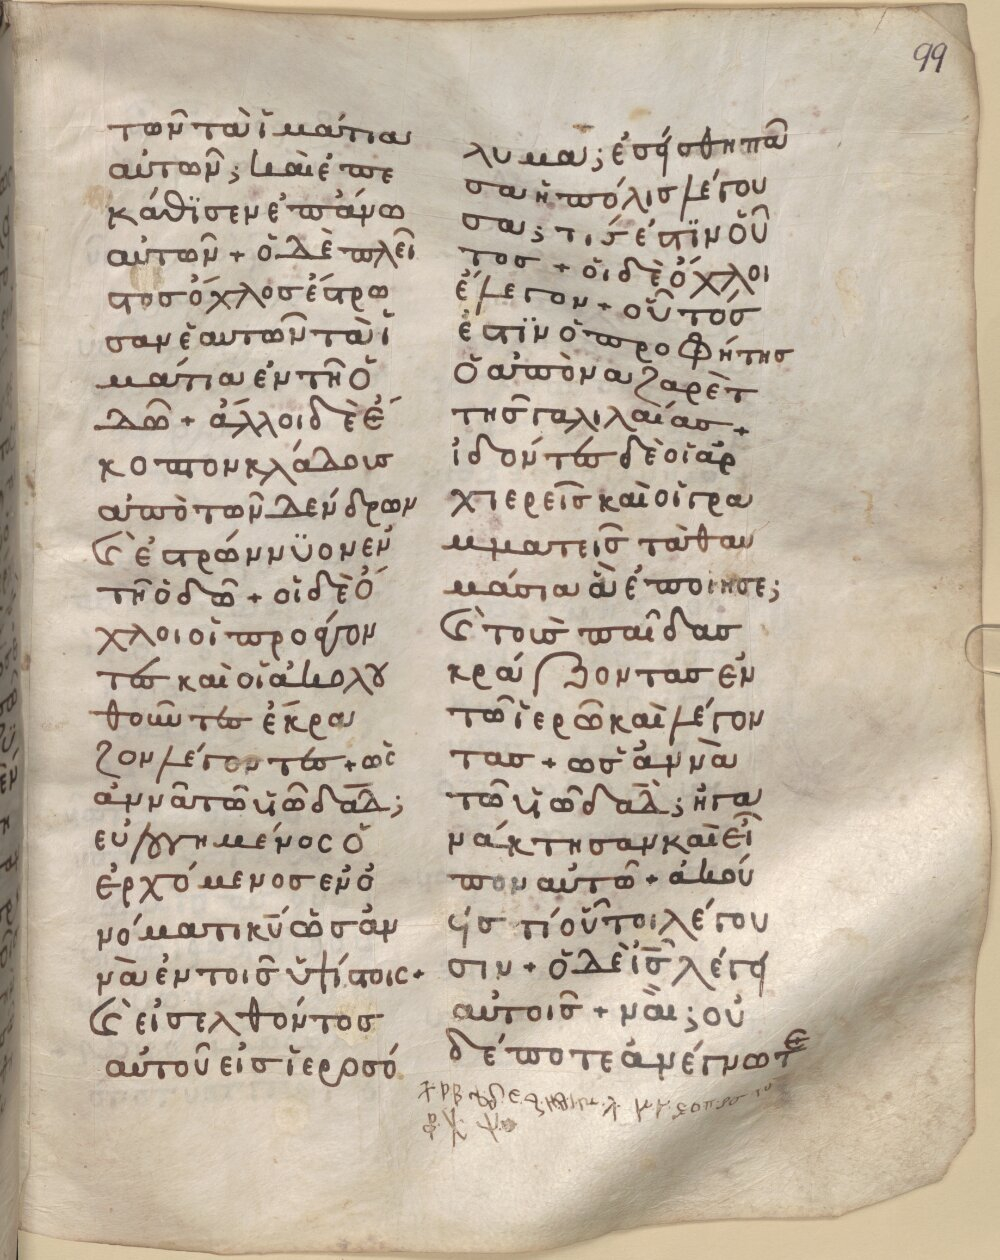 99
τῶν τὰ ἱμάτια
αὐτῶν; και ἐπε
κάθϊσεν ἐπάνω
αὐτῶν + ὁ δὲ πλεῖ
στος ὄχλος ἔστρω
σαν ἑαυτῶν τὰ ἱ
μάτια ἐν τῆ ὁ
δῶ + ἄλλοι δὲ ἔ
κοπτον κλάδους
ἀπὸ τῶν δένδρων
καὶ ἐστρώννϋον ἐν
τῆ ὁδῶ + οἱ δὲ ὄ
χλοι οἱ προάγον
τες καὶ οἱ ἀκολου
θοῦντες ἔκρα
ζον λέγοντες + ὡς
ἀννὰ τῶ υἱῶ δαδ;
εὐλογημένος ὁ
ἐρχόμενος ἐν ὀ
νόματι κυ ὡσαν
νὰ ἐν τοῖς ὑψίστοις +
καὶ εἰσελθόντος
αὐτοῦ εἰς ἱεροσό
λυμα; ἐσείσθη πᾶ
σα ἡ πόλις λέγου
σα; τίς ἐστϊν οὗ
τος + οἱ δὲ ὄχλοι
ἔλεγον + οὗτός
ἐστϊν ὁ προφήτης
ὁ ἀπὸ ναζαρὲτ
τῆς γαλιλαίας +
ἰδόντες δὲ οἱ ἀρ
χιερεῖς καὶ οἱ γρα
μματεῖς τὰ θαυ
μάσια ἃ ἐποίησε;
καὶ τοὺς παῖδας
κράζοντας ἐν
τῶ ἱερῶ καὶ λέγον
τας + ὡσἀννὰ
τῶ υἱῶ δαδ; ἠγα
νάκτησαν καὶ εἶ
πον αὐτῶ + ἀκού
εις τί οὗτοι λέγου
σιν + ὁ δὲ ἰς λέγει
αὐτοῖς + ναὶ; οὐ
δέποτε ἀνέγνωτε